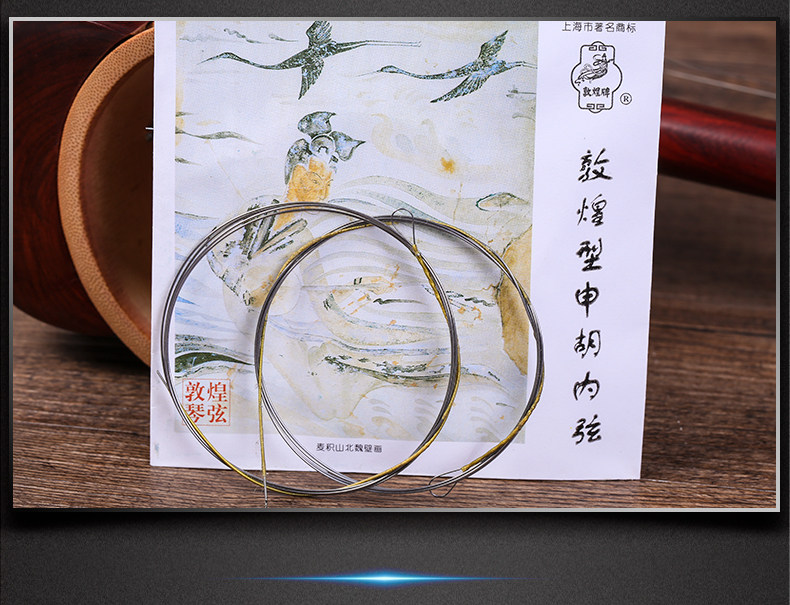 上海市著名商标
敦煌牌
®
敦煌型申胡内弦
敦煌
琴弦
麦积山北魏壁画